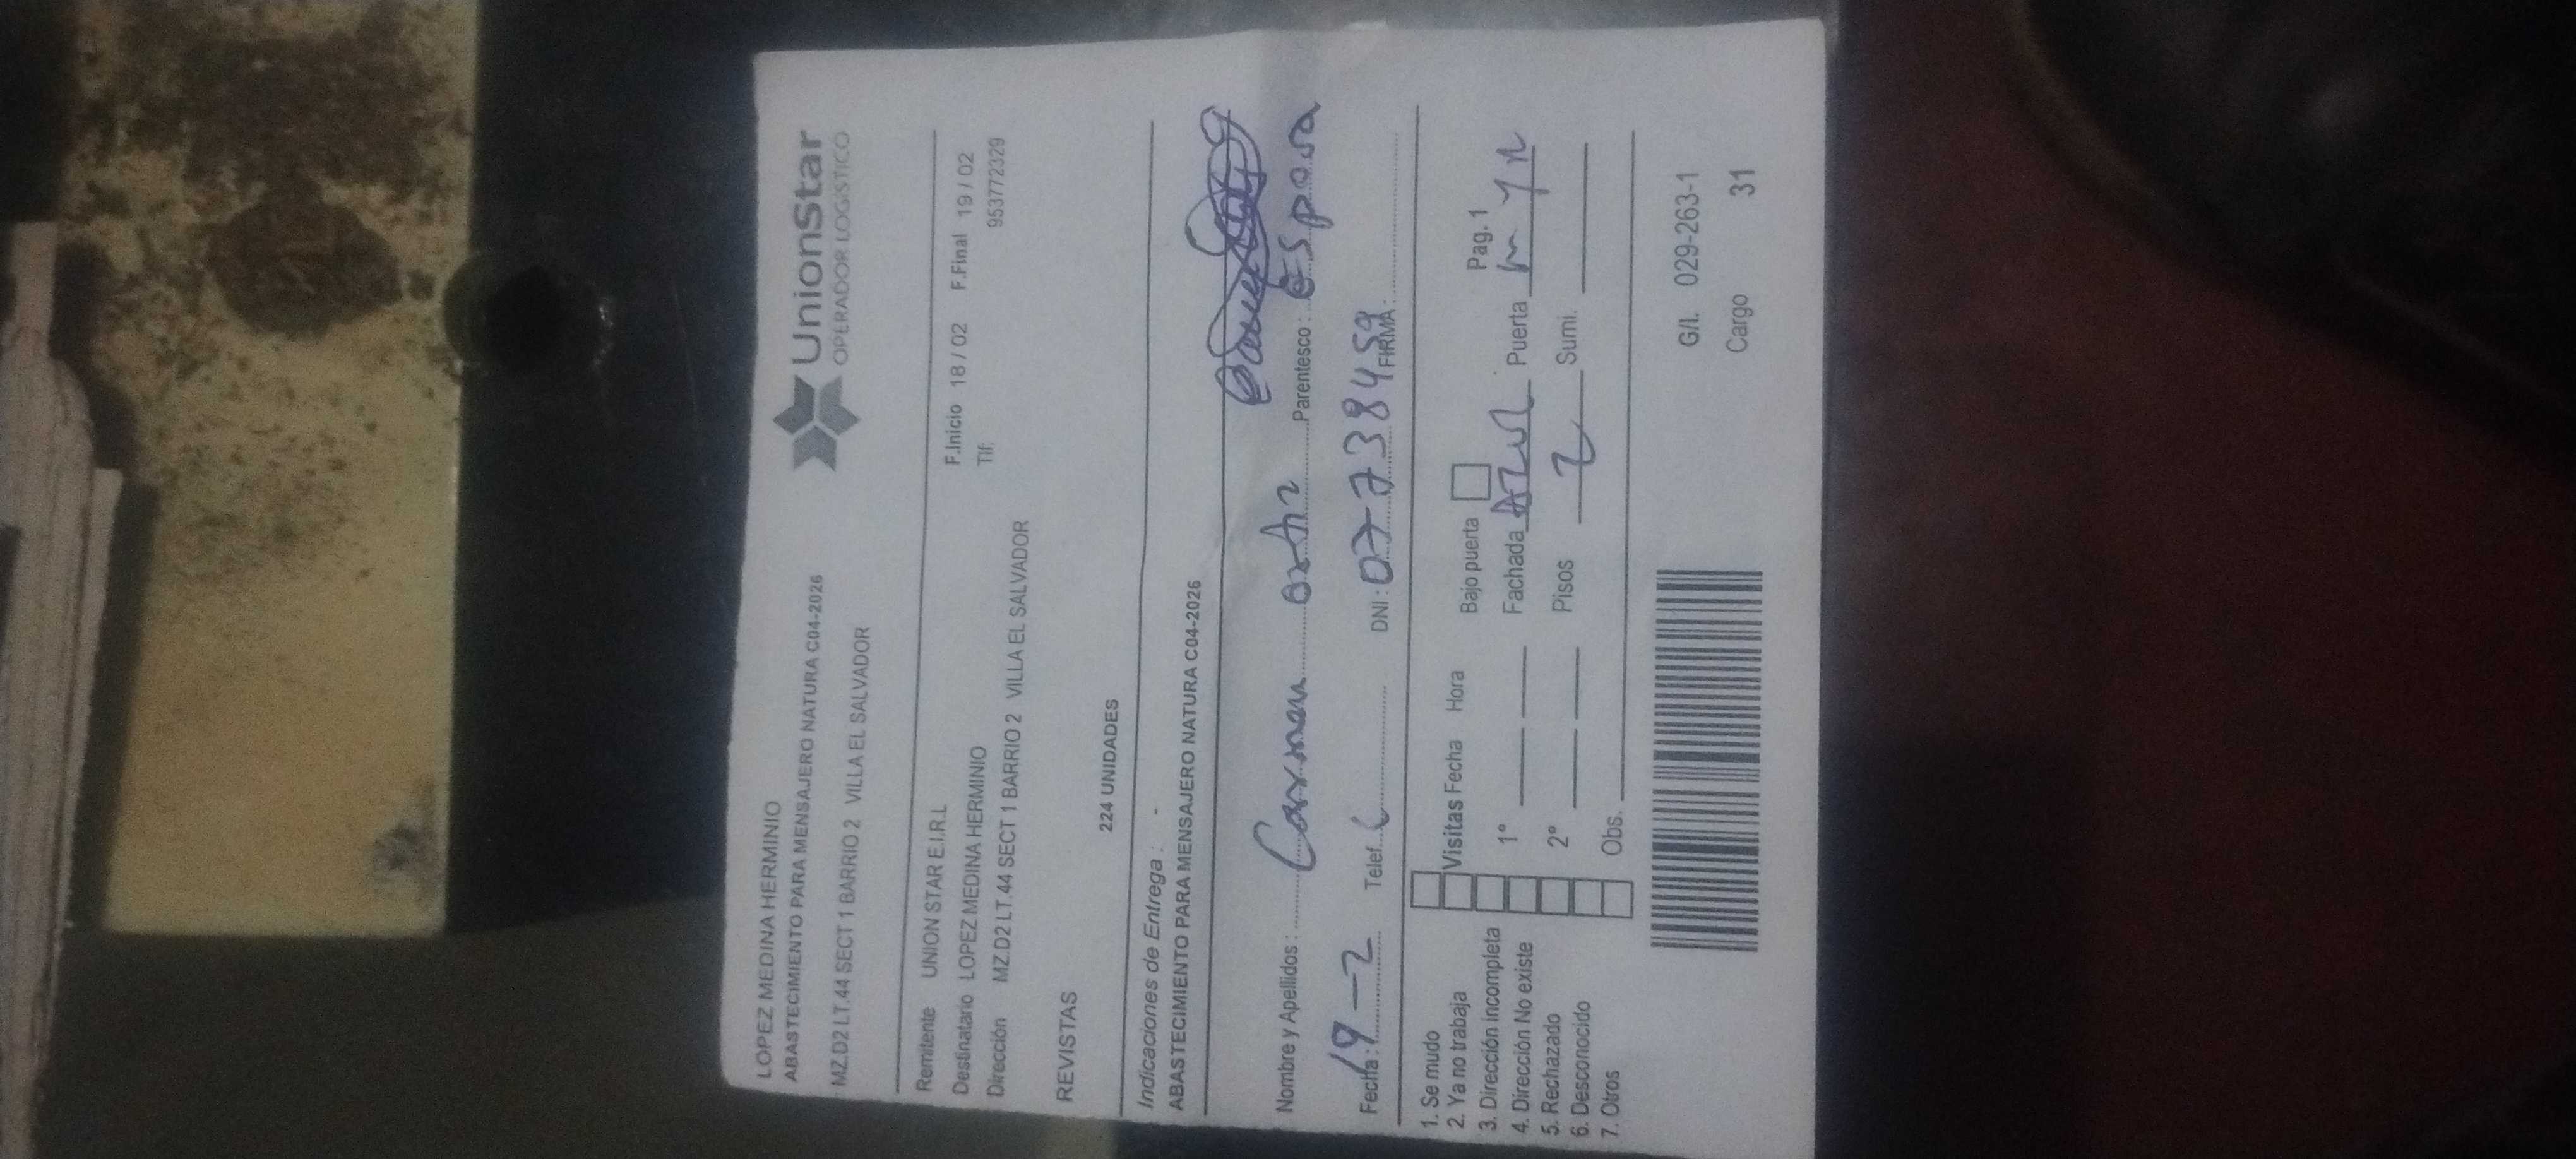 LOPEZ MEDINA HERMINIO
ABASTECIMIENTO PARA MENSAJERO NATURA C04-2026
MZ.D2 LT.44 SECT 1 BARRIO 2 VILLA EL SALVADOR
UnionStar
OPERADOR LOGÍSTICO
Remitente UNION STAR E.I.R.L
F.Inicio 18 / 02 F.Final 19 / 02
Destinatario LOPEZ MEDINA HERMINIO
Tlf. 953772329
Dirección MZ.D2 LT.44 SECT 1 BARRIO 2 VILLA EL SALVADOR
REVISTAS
224 UNIDADES
Indicaciones de Entrega : -
ABASTECIMIENTO PARA MENSAJERO NATURA C04-2026
Nombre y Apellidos : Carmen ortiz Parentesco : Esposa
Fecha : 19-2 Telef. DNI : 07738459 FIRMA :
1. Se mudo
2. Ya no trabaja
3. Dirección incompleta
4. Dirección No existe
5. Rechazado
6. Desconocido
7. Otros
Visitas Fecha Hora Bajo puerta Pag. 1
1° Fachada Azul Puerta
2° Pisos 2 Sumi.
Obs.
G/I. 029-263-1
Cargo 31